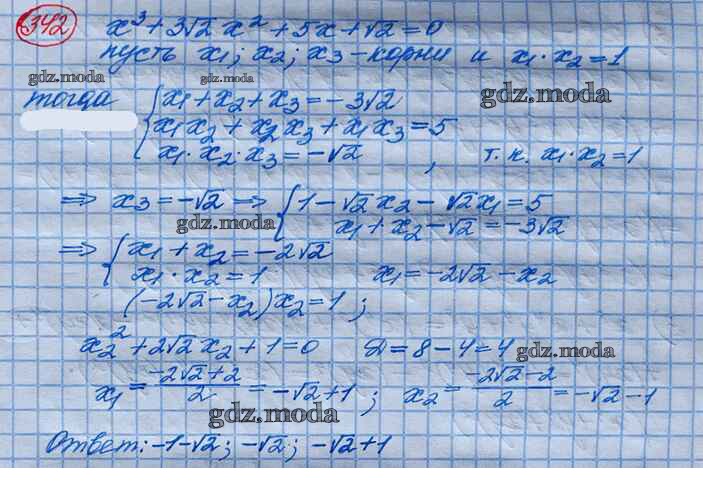 342
x³ + 3√2 x² + 5x + √2 = 0
пусть x₁; x₂; x₃ – корни и x₁ · x₂ = 1
gdz.moda gdz.moda gdz.moda
тогда { x₁ + x₂ + x₃ = -3√2
x₁x₂ + x₂x₃ + x₁x₃ = 5
x₁ · x₂ · x₃ = -√2 , т.к. x₁ · x₂ = 1
⇒ x₃ = -√2 ⇒ { 1 - √2 x₂ - √2 x₁ = 5
gdz.moda
x₁ + x₂ - √2 = -3√2
⇒ { x₁ + x₂ = -2√2
x₁ · x₂ = 1 x₁ = -2√2 - x₂
(-2√2 - x₂)x₂ = 1 ;
x₂² + 2√2 x₂ + 1 = 0 Д = 8 - 4 = 4
gdz.moda
x₁ = (-2√2 + 2)/2 = -√2 + 1 ; x₂ = (-2√2 - 2)/2 = -√2 - 1
gdz.moda
Ответ: -1 - √2 ; -√2 ; -√2 + 1